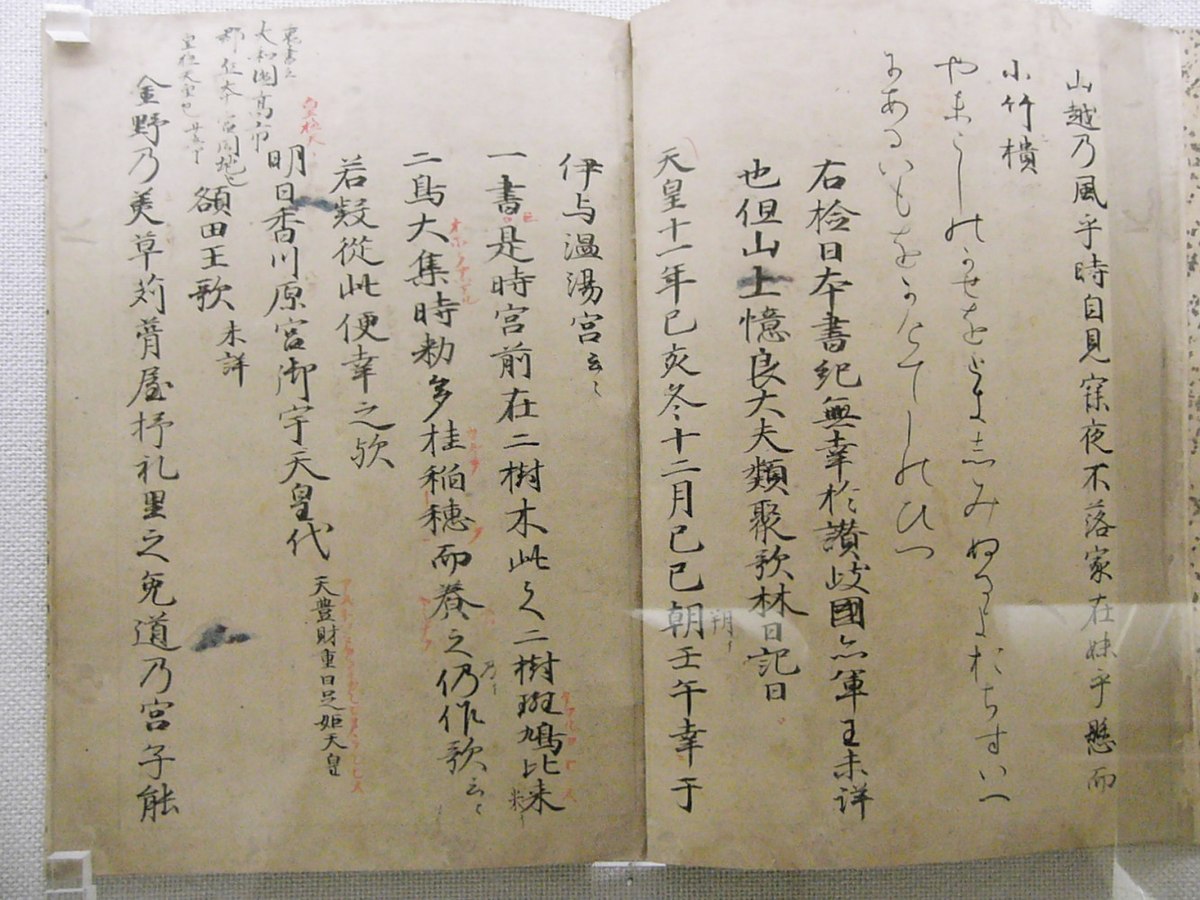 山越乃風乎時自見寐夜不落家在妹乎懸而
小竹樻
やまこしのかせをときしみぬるよおちすいへ
にあるいもをかけてしのひつ
右檢日本書紀無幸於讃岐國亦軍王未詳
也但山上憶良大夫類聚歌林曰記曰
天皇十一年己亥冬十二月己巳朝壬午幸于
朔
伊与温湯宮云々
一書是時宮前在二樹木此之二樹斑鳩比米
二鳥大集時勅多桂稲穂而養之仍作歌云々
乃
若疑從此便幸之歟
明日香川原宮御宇天皇代 天豊財重日足姫天皇
皇極天
裏書云
大和國高市
額田王歌 未詳
金野乃美草苅葺屋抒礼里之兔道乃宮子能